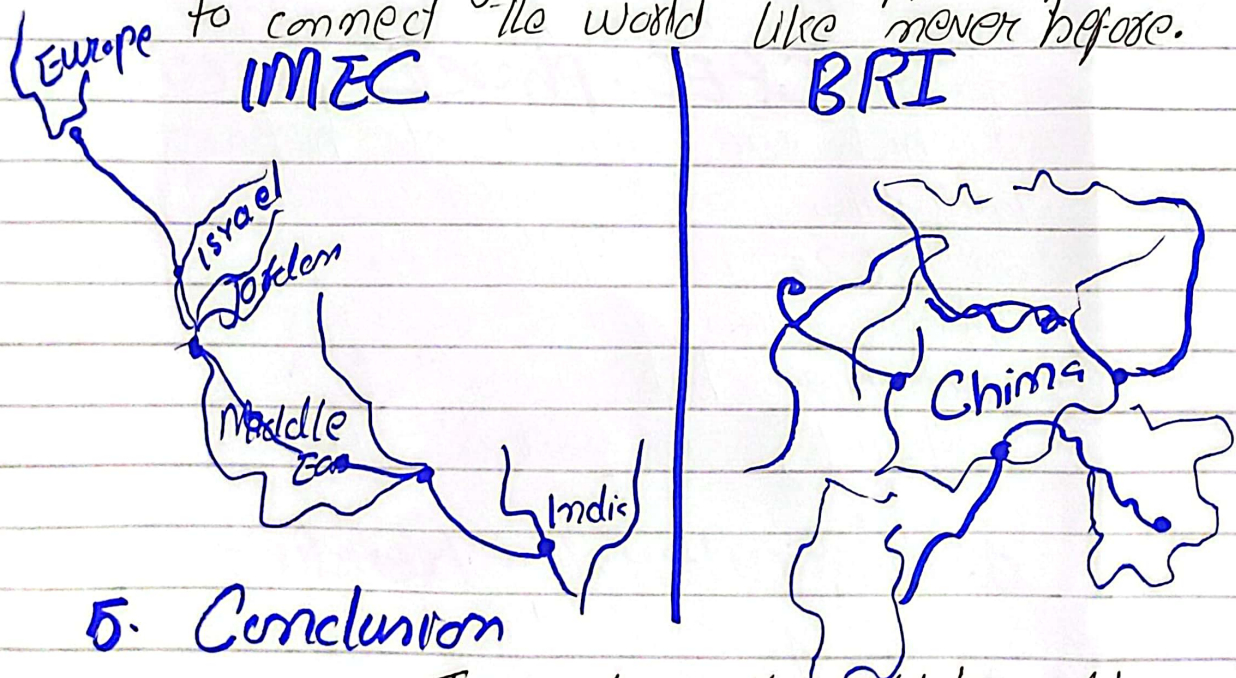 to connect the world like never before.
Europe
IMEC
BRI
Israel
Jordan
Middle
East
India
China
5. Conclusion